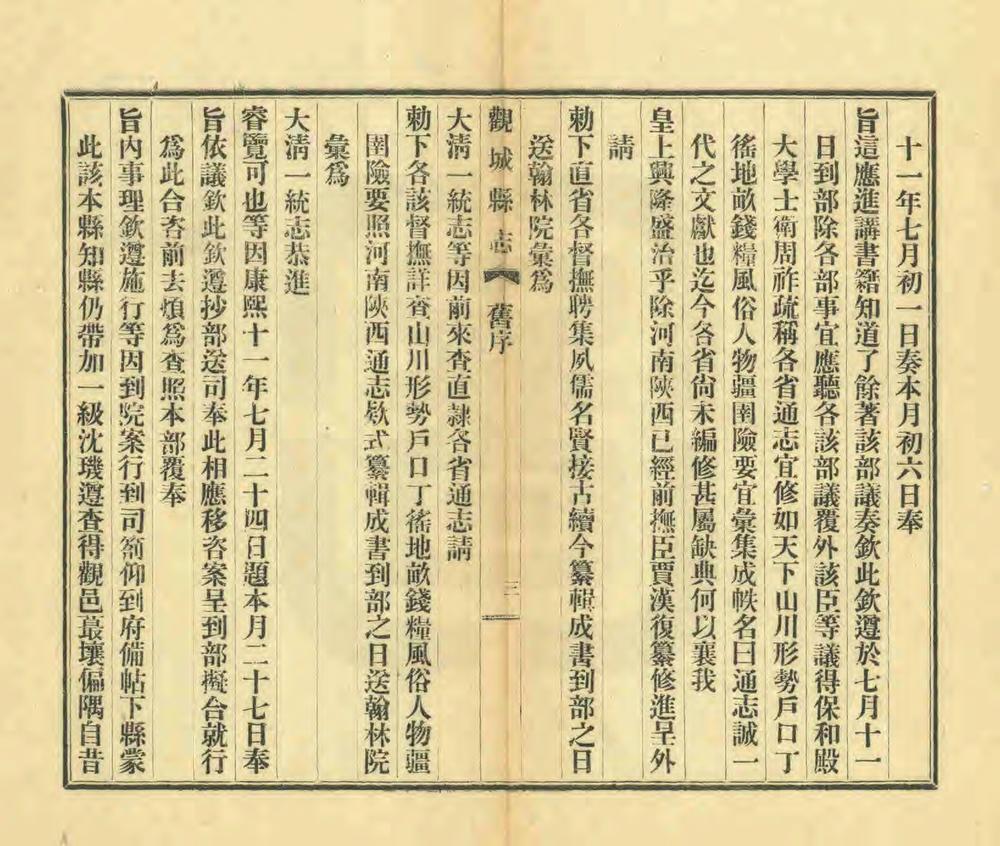 十一年七月初一日奏本月初六日奉
旨這應進講書籍知道了餘著該部議奏欽此欽遵於七月十一
日到部除各部事宜應聽各該部議覆外該臣等議得保和殿
大學士衛周祚疏稱各省通志宜修如天下山川形勢戶口丁
徭地畝錢糧風俗人物疆圉險要宜彙集成帙名曰通志誠一
代之文獻也迄今各省尙未編修甚屬缺典何以襄我
皇上興隆盛治乎除河南陝西已經前撫臣賈漢復纂修進呈外
請
勅下直省各督撫聘集夙儒名賢接古續今纂輯成書到部之日
送翰林院彙爲
觀城縣志 舊序 三
大淸一統志等因前來查直隷各省通志請
勅下各該督撫詳查山川形勢戶口丁徭地畝錢糧風俗人物疆
圉險要照河南陝西通志欵式纂輯成書到部之日送翰林院
彙爲
大淸一統志恭進
睿覽可也等因康熙十一年七月二十四日題本月二十七日奉
旨依議欽此欽遵抄部送司奉此相應移咨案呈到部擬合就行
爲此合咨前去煩爲查照本部覆奉
旨內事理欽遵施行等因到院案行到司箚仰到府備帖下縣蒙
此該本縣知縣仍帶加一級沈璣遵查得觀邑蕞壤偏隅自昔